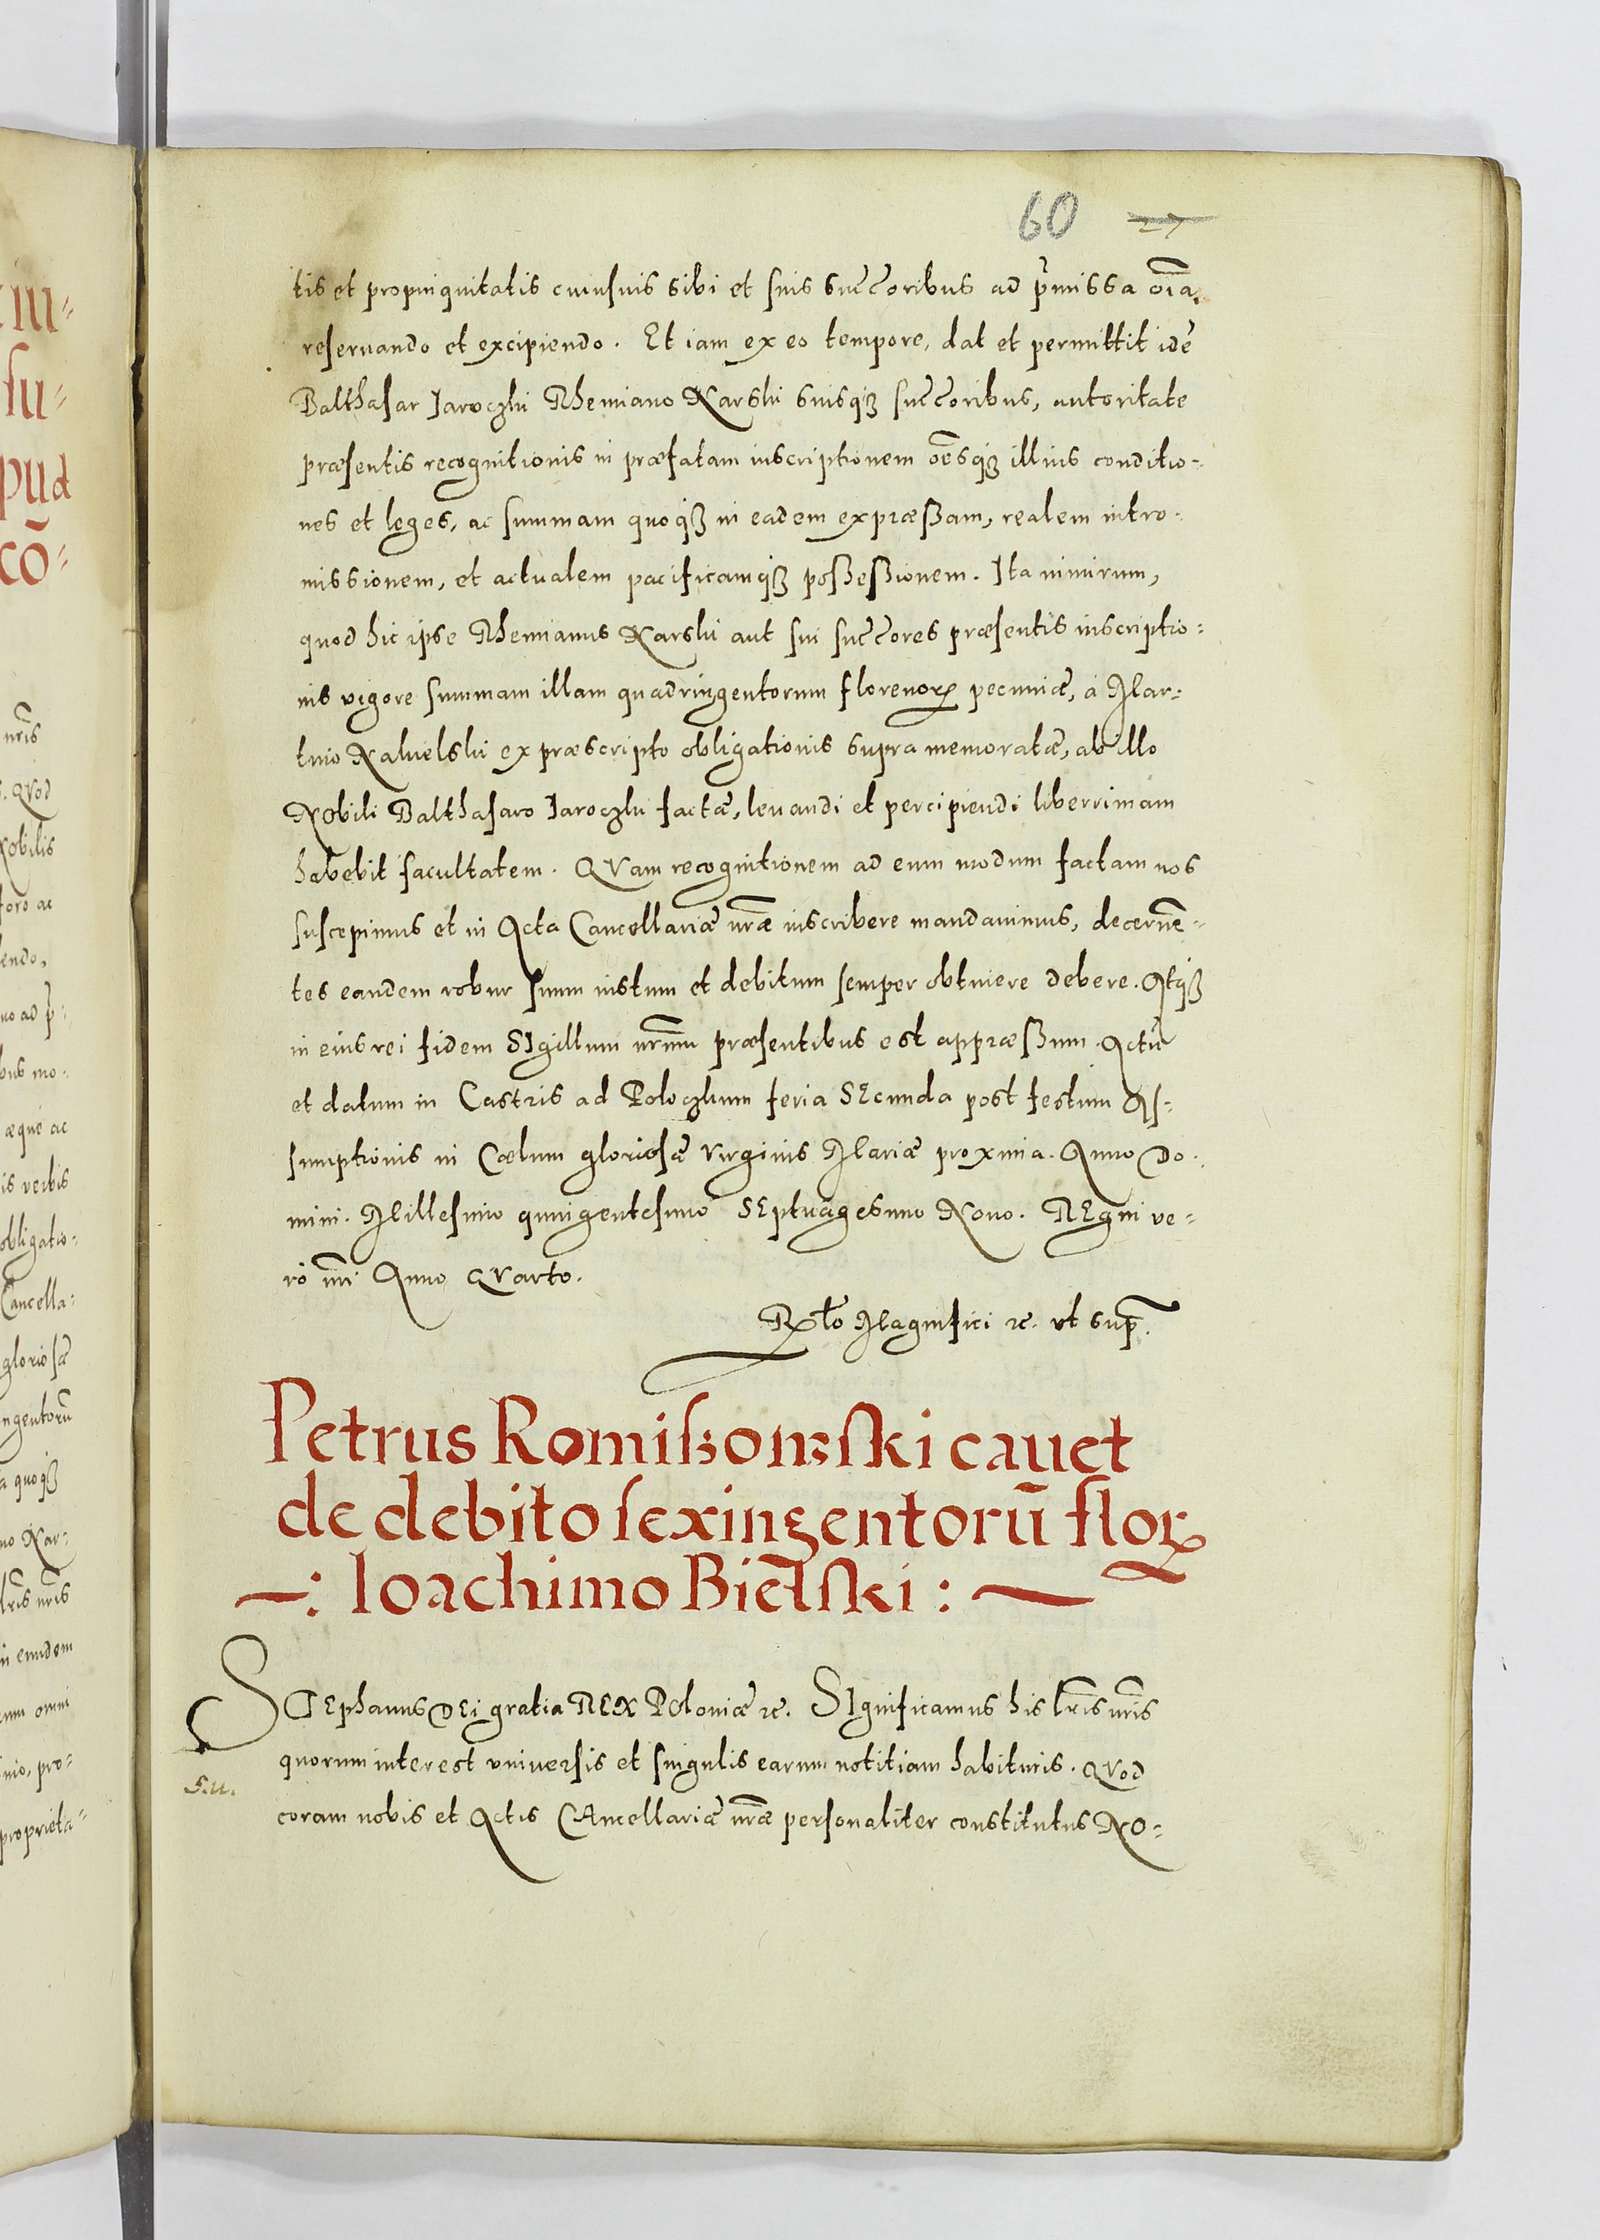 60 27
tis et propinquitatis cuiusuis sibi et suis succ̃oribus ad p̃missa oĩa
reseruando et excipiendo. Et iam ex eo tempore, dat et permittit idẽ
Balthasar Jaroczki Themiano Karski suisqꝫ succ̃oribus, autoritate
præsentis recognitionis in præfatam inscriptionem oẽsqꝫ illius conditio-
nes et leges, ac summam quoqꝫ in eadem expræßam, realem intro-
missionem, et actualem pacificamqꝫ poßeßionem. Ita nimirum,
quod hic ipse Themianus Karski aut sui succ̃ores præsentis inscriptio-
nis vigore summam illam quadringentorum florenorꝝ pecuniæ, a Mar-
tino Kaluelski ex præscripto obligationis supra memoratæ, ab illo
Nobili Balthasaro Jaroczki factæ, leuandi et percipiendi liberrimam
habebit facultatem. QVam recognitionem ad eum modum factam nos
suscepimus et in Acta Cancellariæ nr̃æ inscribere mandauimus, decernẽ-
tes eandem robur suum iustum et debitum semper obtinere debere. Atqꝫ
in eius rei fidem SIgillum nr̃um præsentibus est appræßum. Actũ
et datum in Castris ad Poloczkum feria SEcunda post festum As-
sumptionis in Cælum gloriosæ Virginis Mariæ proxima. Anno Do-
mini. Millesimo quingentesimo SEptuagesimo Nono. REgni ve-
rò nr̃i Anno QVarto.
Rl̃o Magnifici ꝛc. vt sup̃.
Petrus Romißowski cauet
de debito sexingentorũ florꝝ
—: Ioachimo Bielski : —
STEphanus DEi gratia REX Poloniæ ꝛc. SIgnificamus his lr̃is nr̃is
quorum interest vniuersis et singulis earum notitiam habituris. QVod
coram nobis et Actis CAncellariæ nr̃æ personaliter constitutus NO-